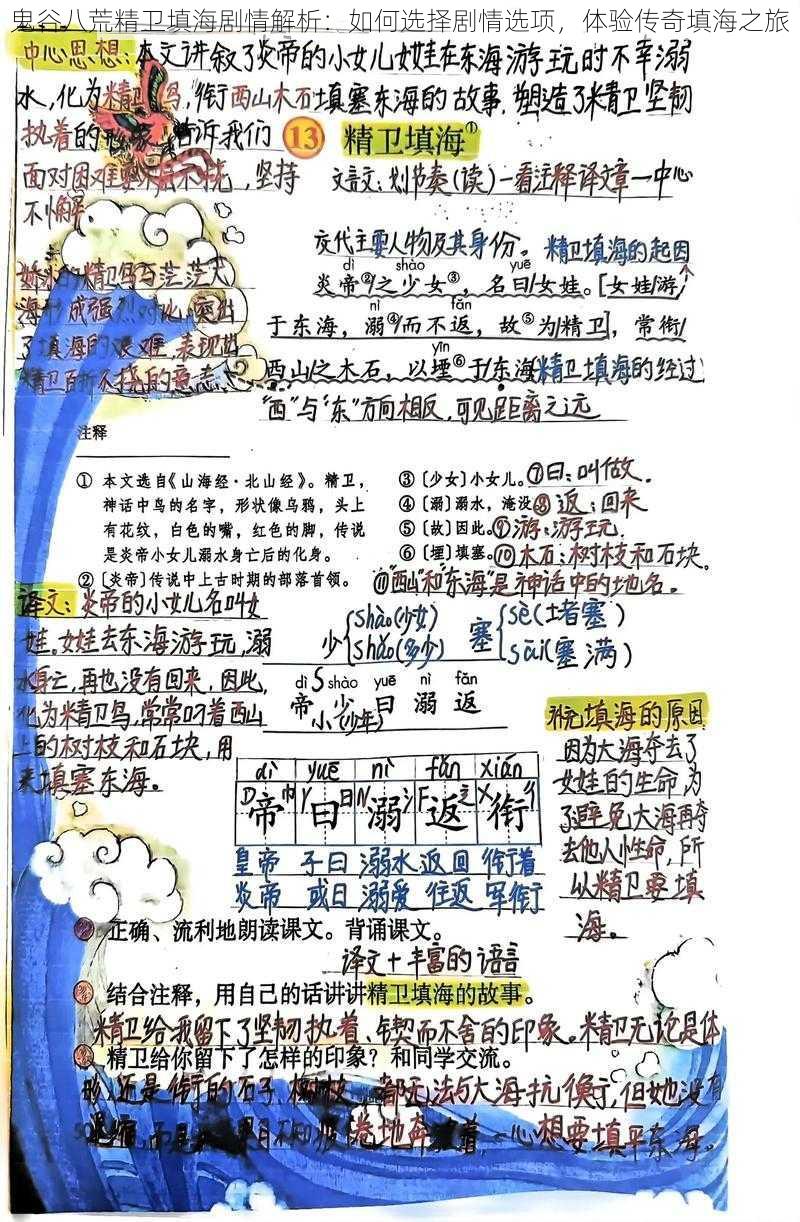 鬼谷八荒精卫填海剧情解析：如何选择剧情选项，体验传奇填海之旅
中心思想：本文讲叙了炎帝的小女儿女娃在东海游玩时不幸溺
水，化为精卫鸟，衔西山木石填塞东海的故事，塑造了精卫坚韧
执着的形象，告诉我们
面对困难要
，坚持
不懈
13 精卫填海①
文言文：划节奏（读）一看注释译文章一中心
交代主要人物及其身份。
精卫填海的起因
dì shào yuē
炎帝②/之少女③，名曰/女娃。[女娃/游/
nì fǎn
于东海，溺④而不返，故⑤为/精卫]，常衔/
yīn
西山/之木石，以堙⑥于/东海
精卫填海的经过
“西”与“东”方向相反，可见距离之远
娇小的精卫鸟与茫茫大
海形成强烈对比，突出
了填海的艰难，表现出
精卫百折不挠的意志。
注释
① 本文选自《山海经·北山经》。精卫，
神话中鸟的名字，形状像乌鸦，头上
有花纹，白色的嘴，红色的脚，传说
是炎帝小女儿溺水身亡后的化身。
② 〔炎帝〕传说中上古时期的部落首领。
③〔少女〕小女儿。⑦曰：叫做．
④〔溺〕溺水，淹没⑧返：回来
⑤〔故〕因此。⑨游：游玩
⑥〔堙〕填塞。⑩木石：树枝和石块。
⑪“西山”和“东海”是神话中的地名。
译文：炎帝的小女儿名叫女
娃。女娃去东海游玩，溺
水身亡，再也没有回来，因此，
化为精卫鸟，常常叼着西山
上的树枝和石块，用
来填塞东海。
少 shào(少女) shǎo(多少)
塞 sè(堵塞) sāi(塞满)
dì shào yuē nì fǎn
帝 少 曰 溺 返
小（少年）
dì yuē nì fǎn xián
帝 曰 溺 返 衔
皇帝 子曰 溺水 返回 衔着
炎帝 或曰 溺爱 往返 军衔
补充填海的原因
因为大海夺去了
女娃的生命，为
了避免大海再夺
去他人性命，所
以精卫要填
海。
正确、流利地朗读课文。背诵课文。
译文+丰富的语言
结合注释，用自己的话讲讲精卫填海的故事。
精卫给我留下了坚韧执着、锲而不舍的印象。精卫无论是体
精卫给你留下了怎样的印象？和同学交流。
形，还是衔的石子、树枝，都无法与大海抗衡，但她没有
退缩，而是
不知疲倦地奔
着，一心想要填平东海。